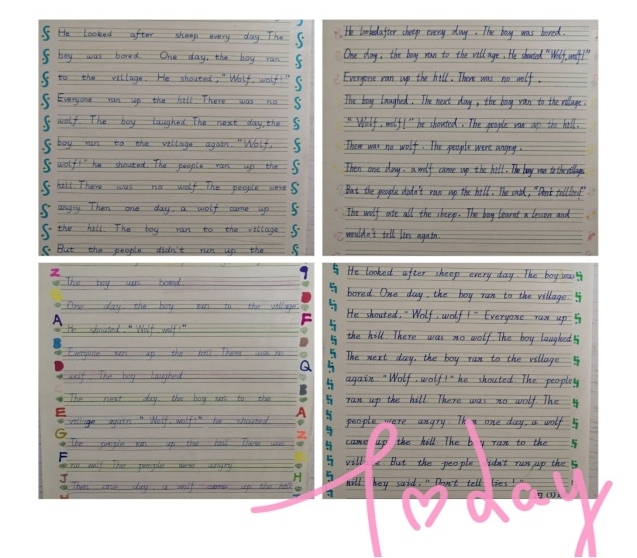 He looked after sheep every day. The
boy was bored. One day, the boy ran
to the village. He shouted, "Wolf, wolf!"
Everyone ran up the hill There was no
wolf. The boy laughed. The next day, the
boy ran to the village again. "Wolf,
wolf!" he shouted. The people ran up the
hill. There was no wolf. The people were
angry. Then one day, a wolf came up
the hill. The boy ran to the village
But the people didn't run up the
He looked after sheep every day. The boy was bored.
One day, the boy ran to the village. He shouted "Wolf, wolf!"
Everyone ran up the hill. There was no wolf.
The boy laughed. The next day, the boy ran to the village.
"Wolf, wolf!" he shouted. The people ran up the hill.
There was no wolf. The people were angry.
Then one day, a wolf came up the hill. The boy ran to the village
But the people didn't run up the hill. The said, "Don't tell lies!"
The wolf ate all the sheep. The boy learnt a lesson and
wouldn't tell lies again.
The boy was bored.
One day the boy ran to the village.
He shouted, "Wolf wolf!"
Everyone ran up the hill There was no
wolf. The boy laughed
The next day the boy ran to the
village again "Wolf wolf!" he shouted.
The people ran up the hill There was
no wolf The people were angry.
Then one day, a wolf came up the hill
He looked after sheep every day. The boy was
bored One day, the boy ran to the village.
He shouted, "Wolf, wolf!" Everyone ran up
the hill There was no wolf The boy laughed
The next day, the boy ran to the village
again. "Wolf, wolf!" he shouted. The people
ran up the hill There was no wolf The
people were angry. Then one day, a wolf
came up the hill The boy ran to the
village But the people didn't run up the
hill They said, "Don't tell lies!"
Today